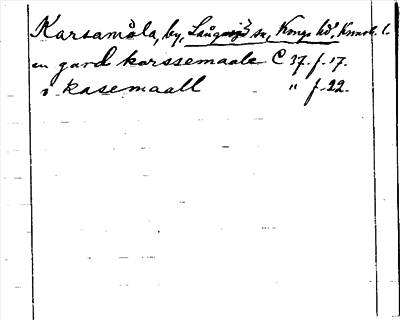 Karsamåla, by, Långasjö sn, Konga hd, Kronob. l.
en gard karssemaale C 37. f. 17.
i kasemaall " f. 22.